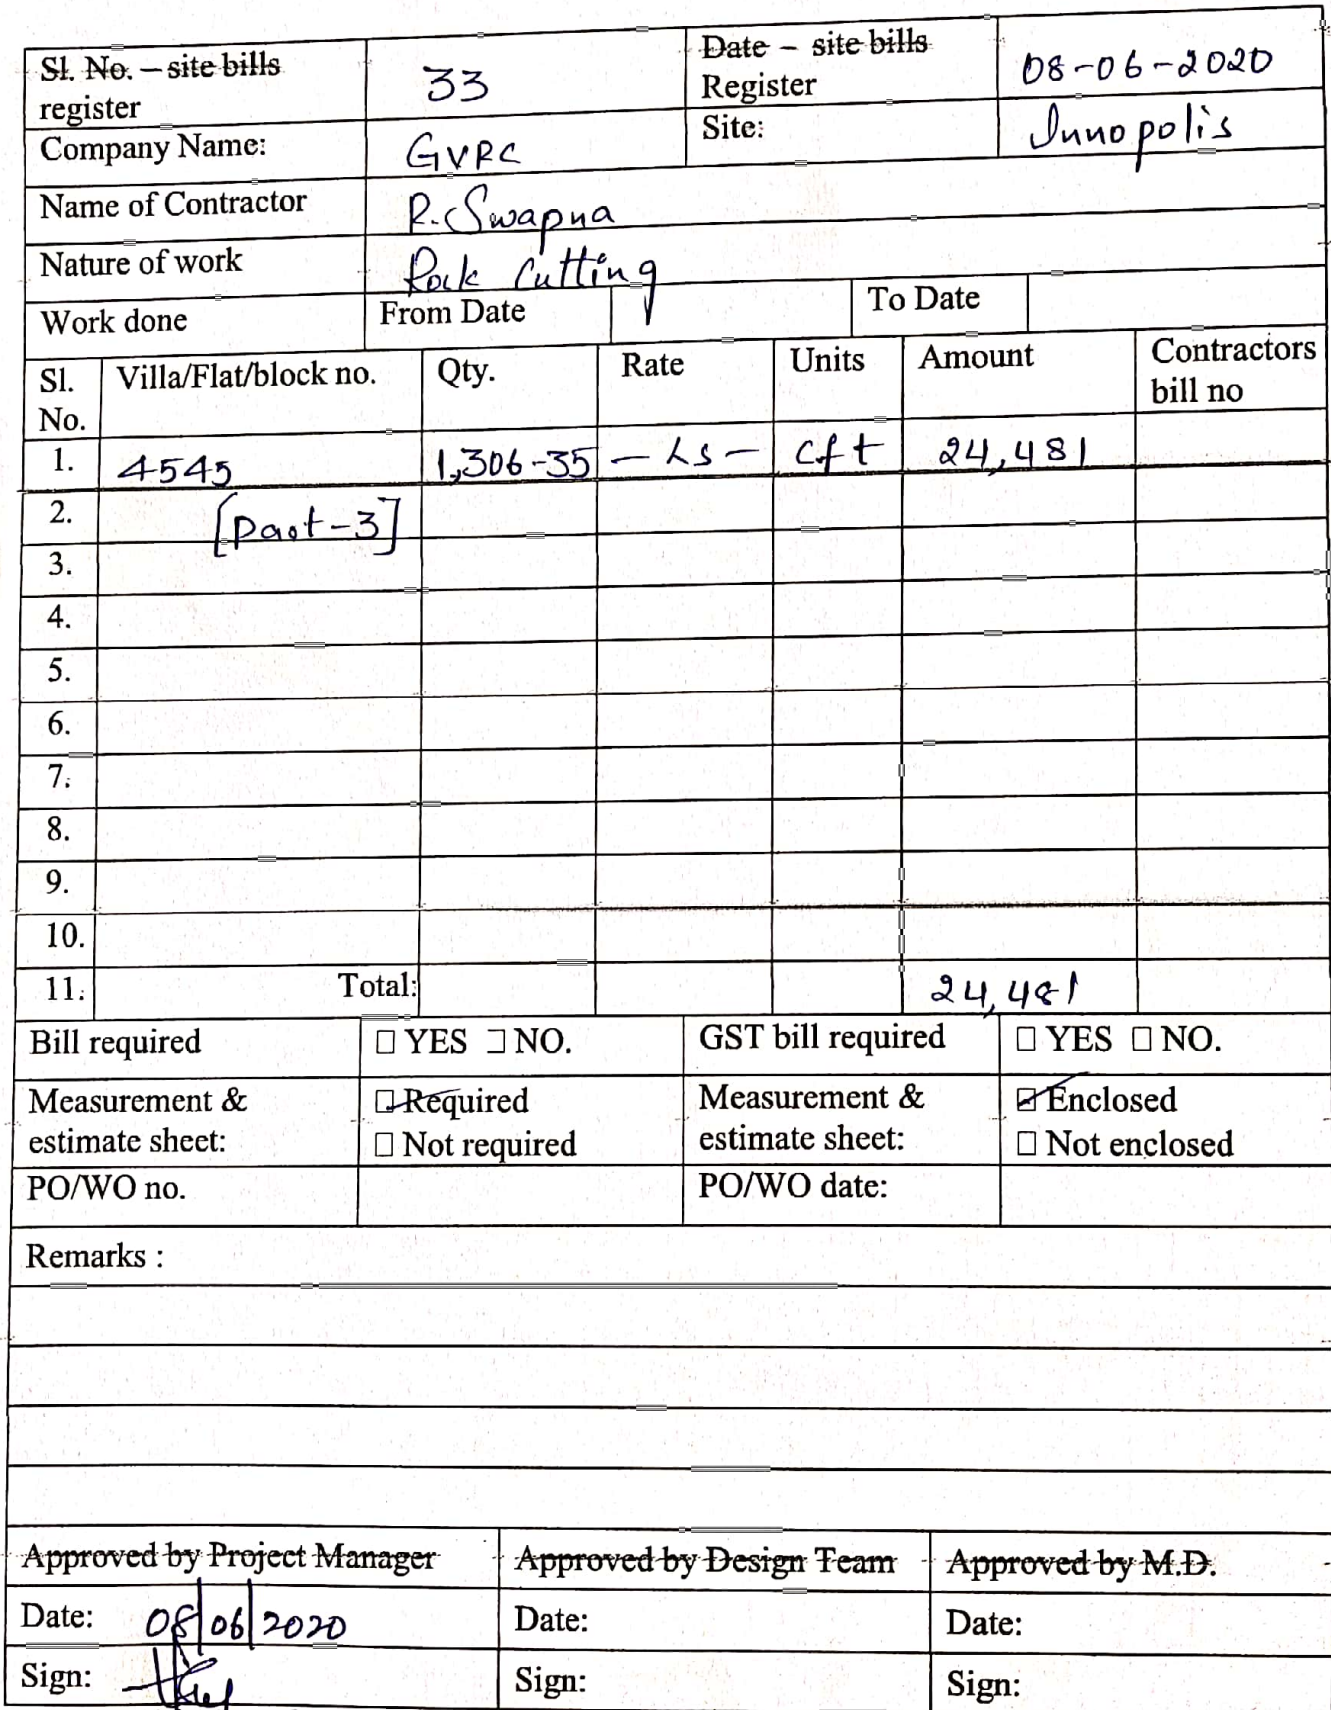 Sl. No. – site bills register 33 Date – site bills Register 08-06-2020
Company Name: GVRC Site: Innopolis
Name of Contractor R. Swapna
Nature of work Rock Cutting
Work done From Date To Date
Sl. No. Villa/Flat/block no. Qty. Rate Units Amount Contractors bill no
1. 4545 1,306-35 - Ls - cft 24,481
2. [part-3]
3.
4.
5.
6.
7.
8.
9.
10.
11. Total: 24,481
Bill required □ YES □ NO. GST bill required □ YES □ NO.
Measurement & estimate sheet: ☑ Required □ Not required Measurement & estimate sheet: ☑ Enclosed □ Not enclosed
PO/WO no. PO/WO date:
Remarks :
Approved by Project Manager Approved by Design Team Approved by M.D.
Date: 08/06/2020 Date: Date:
Sign: Sign: Sign: